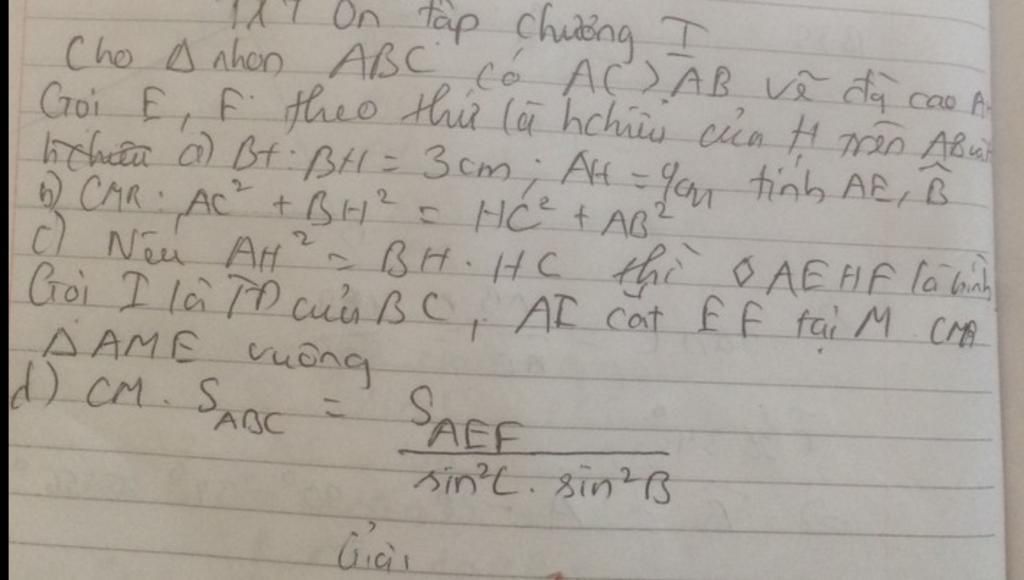 Ôn tập chương I
Cho Δ nhọn ABC có AC > AB vẽ đg cao A
Gọi E, F theo thứ là hchiếu của H trên AB và
a) Bt: BH = 3cm; AH = 9cm tính AE, B̂
b) CMR: AC² + BH² = HC² + AB²
c) Nếu AH² = BH . HC thì ◊ AEHF là hình
Gọi I là TĐ của BC, AI cắt EF tại M CMR
ΔAME vuông
d) CM. S_ABC = S_AEF
sin²C . sin²B
Giải